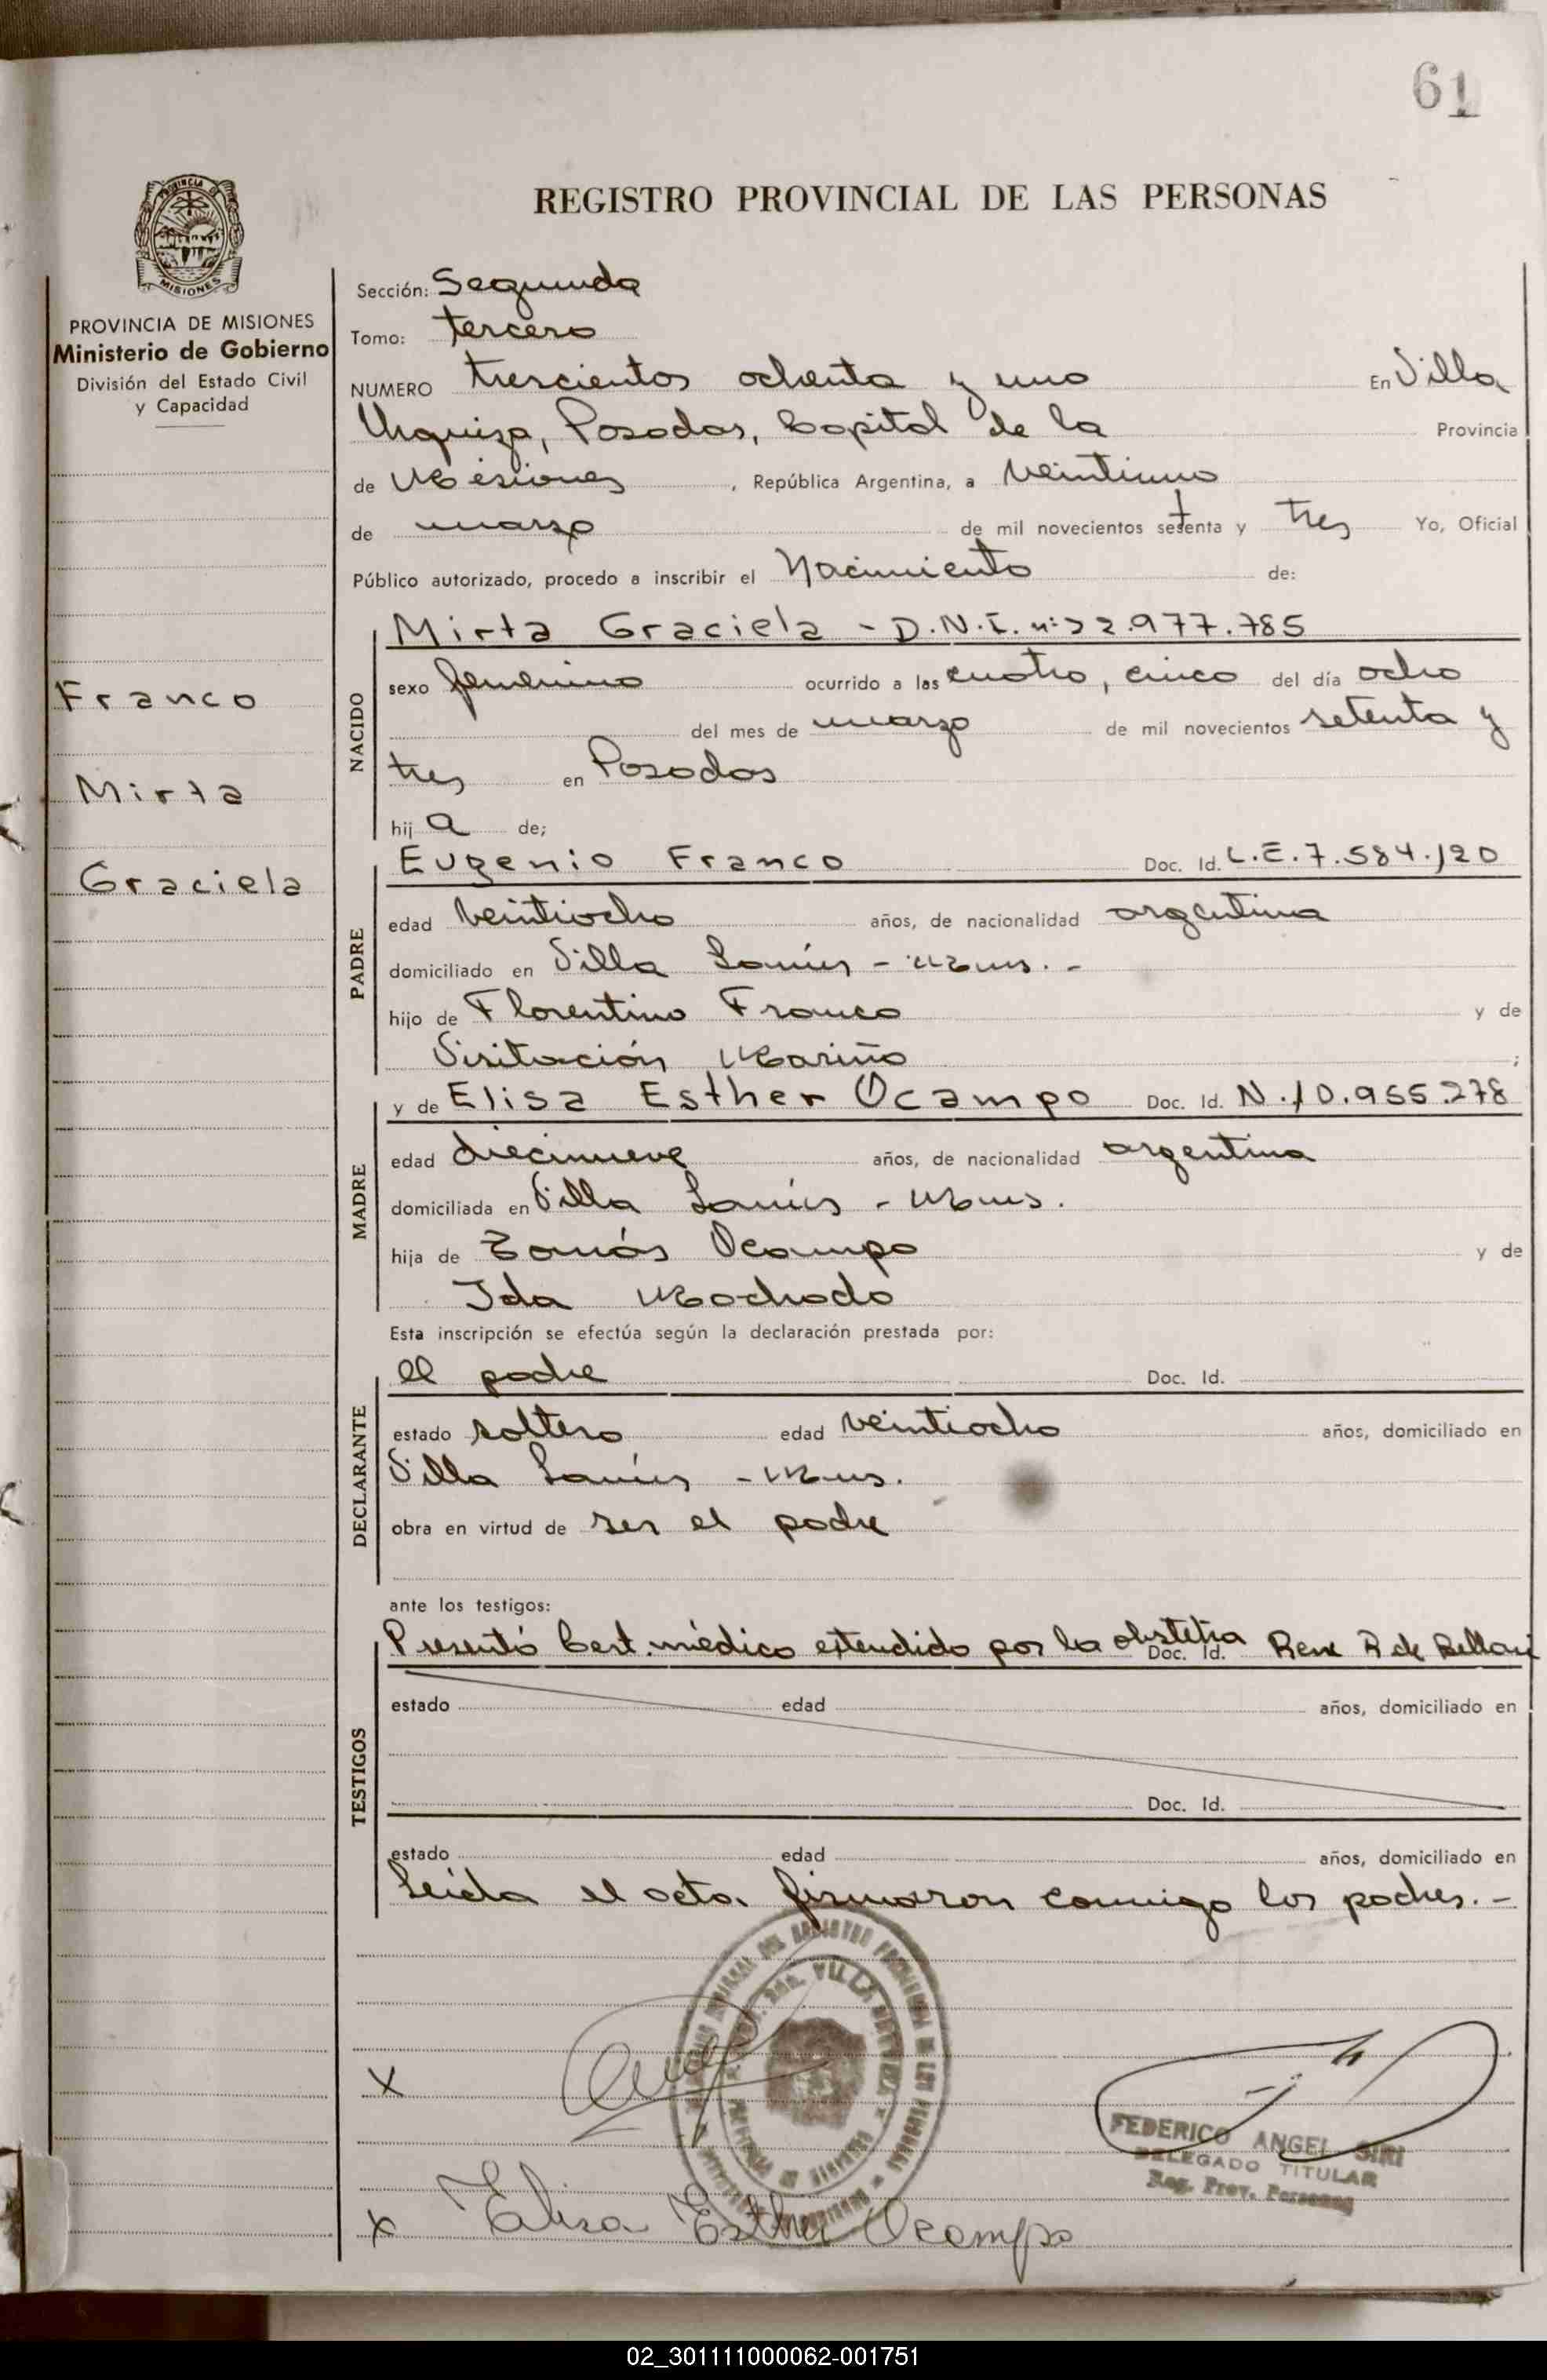 61
REGISTRO PROVINCIAL DE LAS PERSONAS
PROVINCIA DE MISIONES
Ministerio de Gobierno
División del Estado Civil
y Capacidad
Franco
Mirta
Graciela
Sección: Segunda
Tomo: tercero
NUMERO trescientos ochenta y uno En Villa
Urquiza, Posadas, Capital de la Provincia
de Misiones, República Argentina, a veintiuno
de marzo de mil novecientos setenta y tres Yo, Oficial
Público autorizado, procedo a inscribir el Nacimiento de:
NACIDO
Mirta Graciela - D.N.I. nº 22.977.785
sexo femenino ocurrido a las cuatro, cinco del día ocho
del mes de marzo de mil novecientos setenta y
tres en Posadas
hij a de;
PADRE
Eugenio Franco Doc. Id. L.E. 7.584.120
edad veintiocho años, de nacionalidad argentina
domiciliado en Villa Lanús - Mnes. -
hijo de Florentino Franco y de
Visitación Mariño ;
MADRE
y de Elisa Esther Ocampo Doc. Id. N. 10.955.278
edad diecinueve años, de nacionalidad argentina
domiciliada en Villa Lanús - Mnes.
hija de Tomás Ocampo y de
Ida Machado
Esta inscripción se efectúa según la declaración prestada por:
DECLARANTE
el padre Doc. Id.
estado soltero edad veintiocho años, domiciliado en
Villa Lanús - Mnes.
obra en virtud de ser el padre
ante los testigos:
TESTIGOS
Presentó Cert. médico extendido por la obstetra Doc. Id. Rene R de
estado edad años, domiciliado en
Doc. Id.
estado edad años, domiciliado en
Leída el acta, firmaron conmigo los padres. -
X
FEDERICO ANGEL SIRI
DELEGADO TITULAR
Reg. Prov. Personas
X Elisa Esther Ocampo
02_301111000062-001751